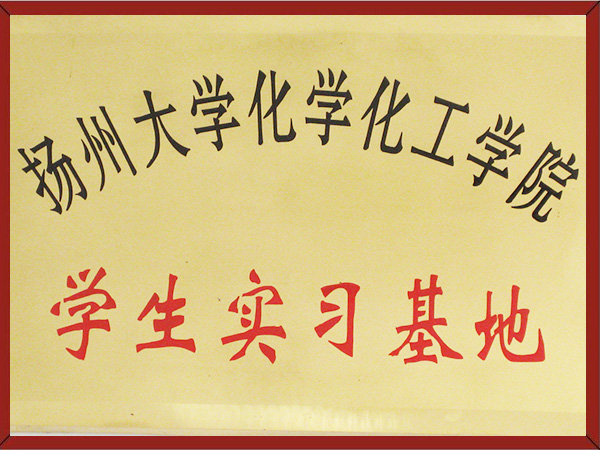 扬州大学化学化工学院
学生实习基地